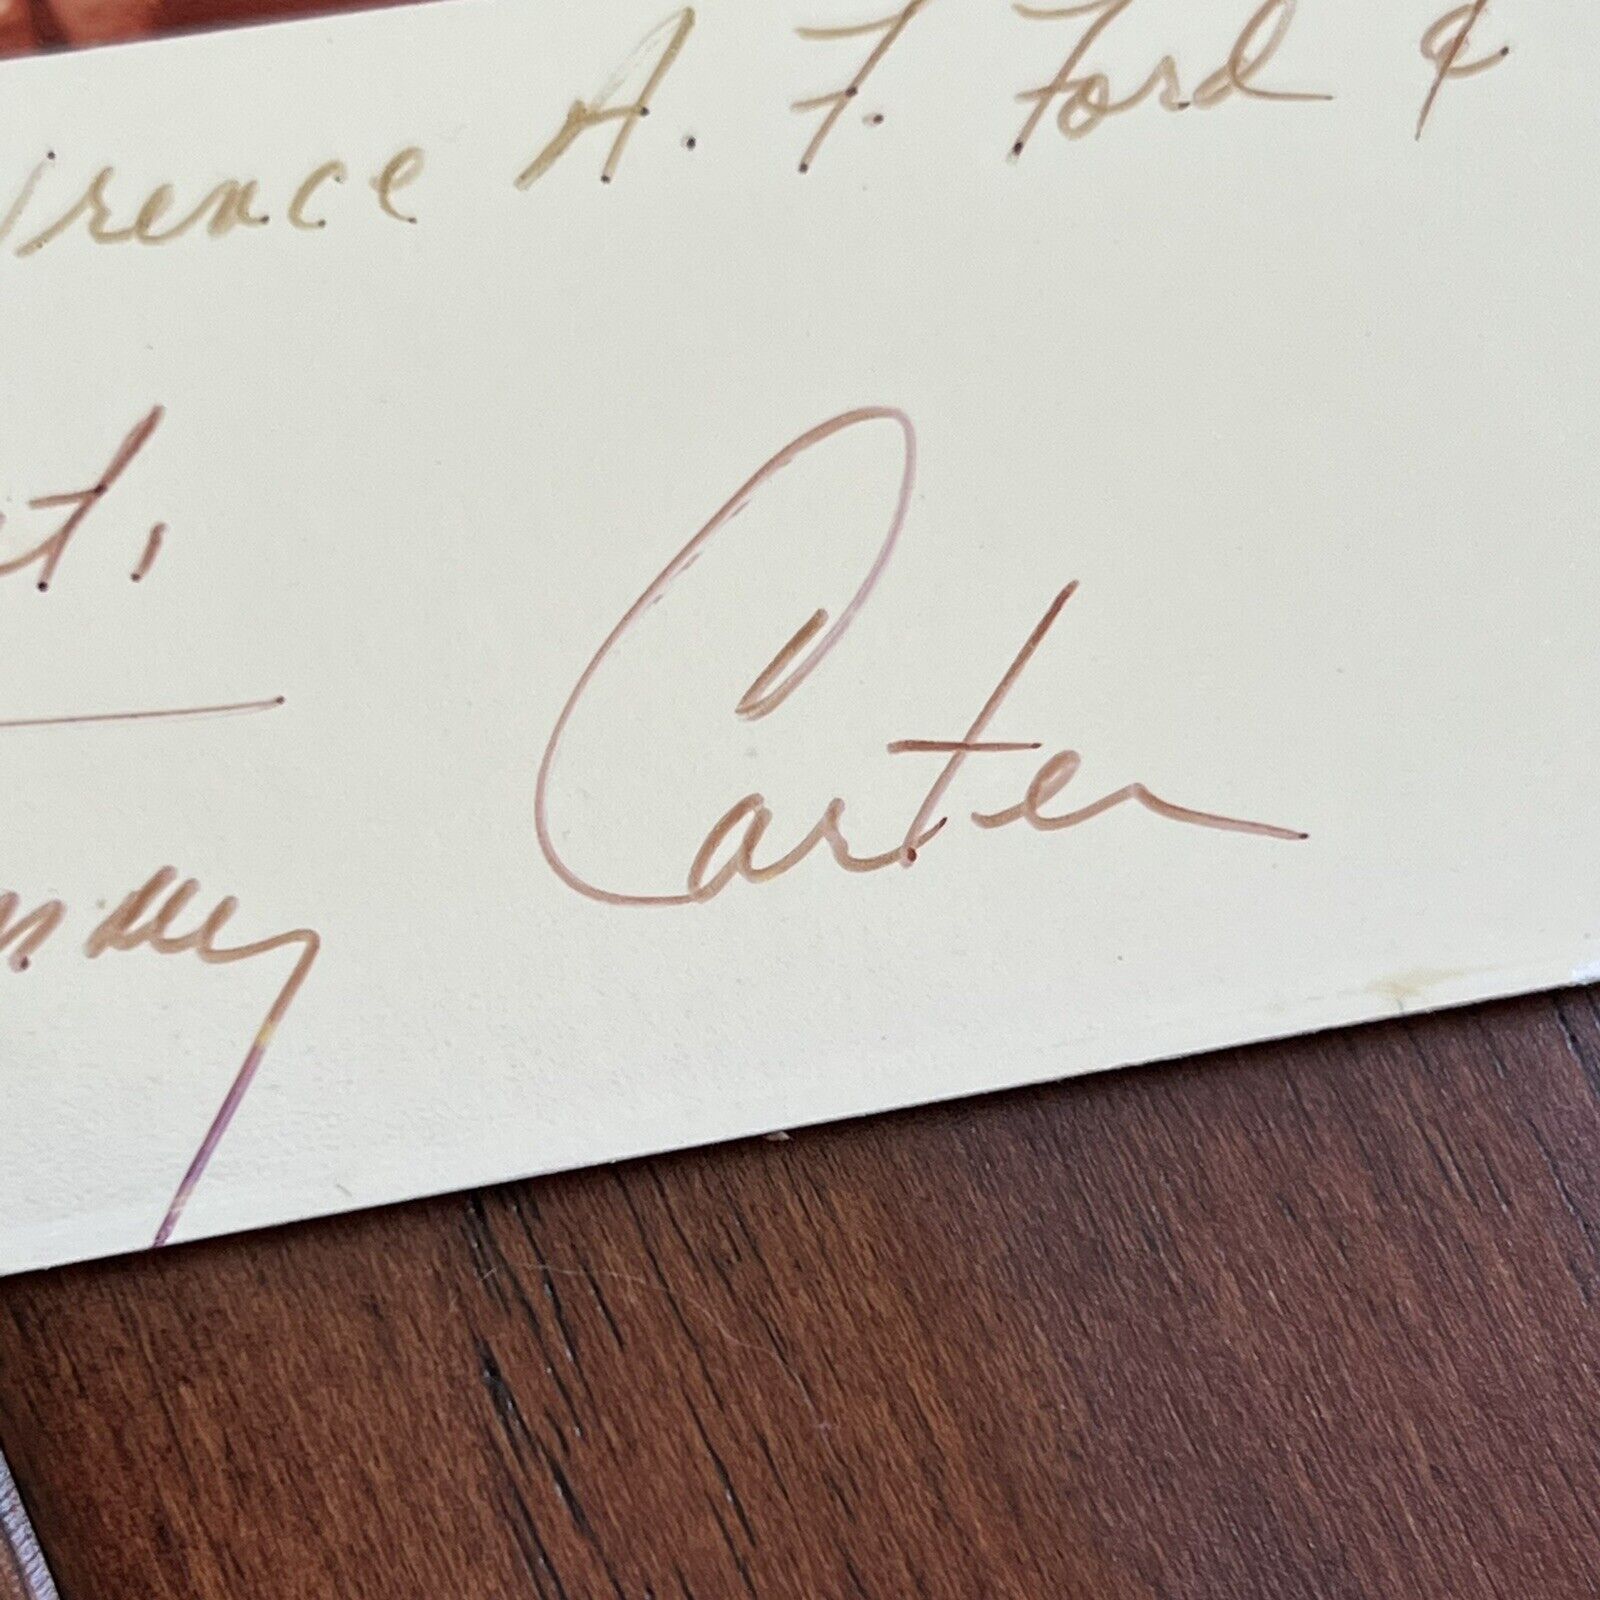 rence A. F. Ford &
t,
Carter